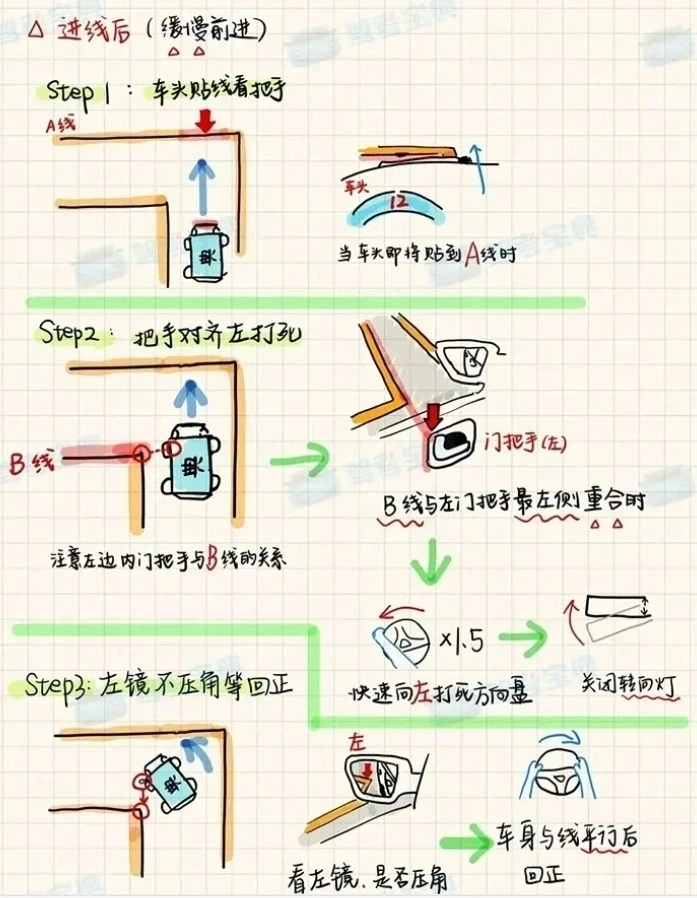 △ 进线后（缓慢前进）
Step1：车头贴线看把手
A线
车头
12
当车头即将贴到A线时
Step2：把手对齐左打死
B线
门把手(左)
B线与左门把手最左侧重合时
注意左边内门把手与B线的关系
×1.5
快速向左打死方向盘
关闭转向灯
Step3：左镜不压角等回正
左
看左镜、是否压角
车身与线平行后
回正